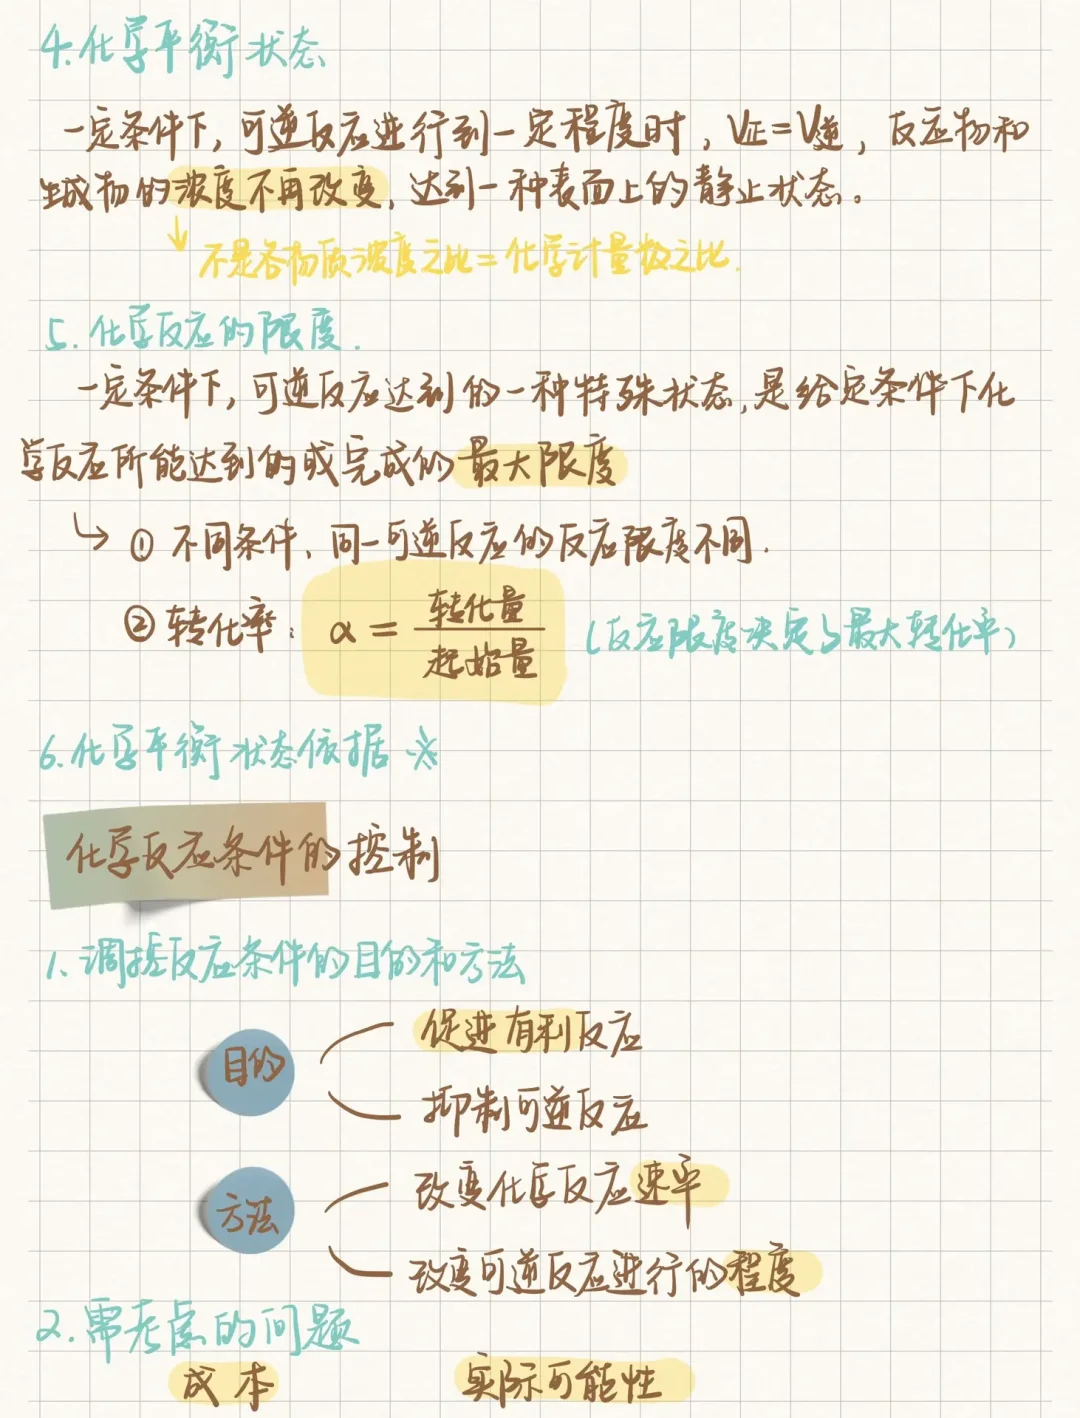 4.化学平衡状态
一定条件下,可逆反应进行到一定程度时,V正=V逆,反应物和
生成物的浓度不再改变,达到一种表面上的静止状态。
↓不是各物质浓度之比=化学计量数之比.
5.化学反应的限度.
一定条件下,可逆反应达到的一种特殊状态,是给定条件下化
学反应所能达到的或完成的最大限度
↳ ①不同条件、同一可逆反应的反应限度不同.
②转化率: α=转化量/起始量 (反应限度决定了最大转化率)
6.化学平衡状态依据 ※
化学反应条件的控制
1、调控反应条件的目的和方法
目的
促进有利反应
抑制可逆反应
方法
改变化学反应速率
改变可逆反应进行的程度
2.需考虑的问题
成本 实际可能性